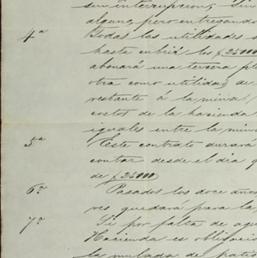 sin interrupcion,
alguna, pero entregando
4ª Todas las utilidades
hasta cubrir los £25000
abonará una tercera
otra como utilidad, de
restante á la mina,
costos de la hacienda
iguales entre la mina
5ª Este contrato durará
contar desde el dia q
de £25000
6ª Pasados los doce años
ves quedará para la
7ª Si por falta de agu
Hacienda es obligacio
la mitad de